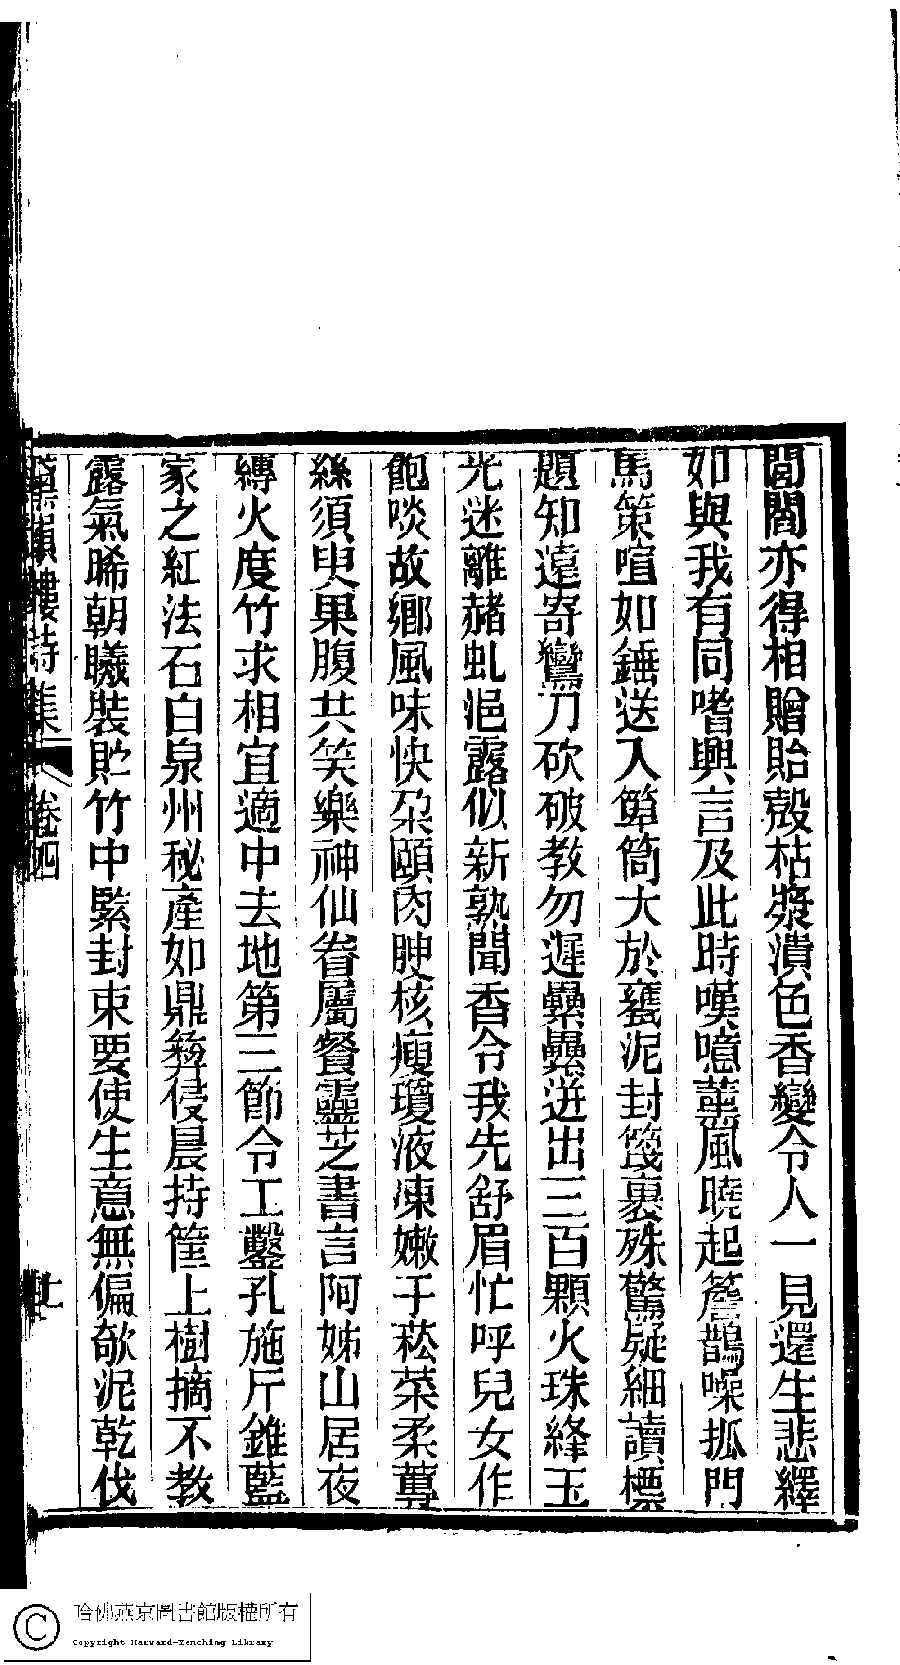 閭閻亦得相贈貽殼枯漿潰色香變令人一見還生悲繹
如與我有同嗜興言及此時嘆噫薰風曉起簷鵲噪孤門
馬策喧如錘送入簞筒大於甕泥封篾裹殊驚疑細讀標
題知遠寄鸞刀砍破教勿遲纍纍迸出三百顆火珠絳玉
光迷離赭虬浥露似新熟聞香令我先舒眉忙呼兒女作
飽啖故鄉風味快朶頤肉腴核瘦瓊液凍嫩于菘菜柔蓴
絲須臾果腹共笑樂神仙眷屬餐靈芝書言阿姊山居夜
縳火度竹求相宜適中去地第三節令工鑿孔施斤錐藍
家之紅法石白泉州秘產如鼎彝侵晨持筐上樹摘不教
露氣晞朝曦裝貯竹中緊封束要使生意無偏欹泥乾伐
韻樓詩集 卷四
哈佛燕京圖書館版權所有
Copyright Harvard-Yenching Library